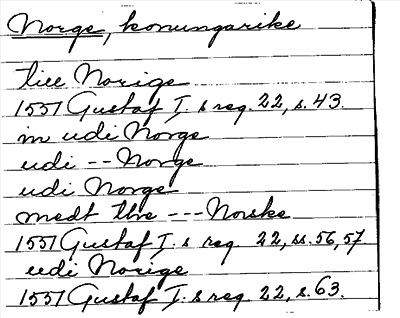 Norge, konungarike
till Norige
1551 Gustaf I. s reg. 22, s. 43.
in udi Norge
udi -- Norge
udi Norge
medt the --- Norske
1551 Gustaf I. s reg. 22, ss. 56, 57.
udi Norige
1551 Gustaf I. s reg. 22, s. 63.